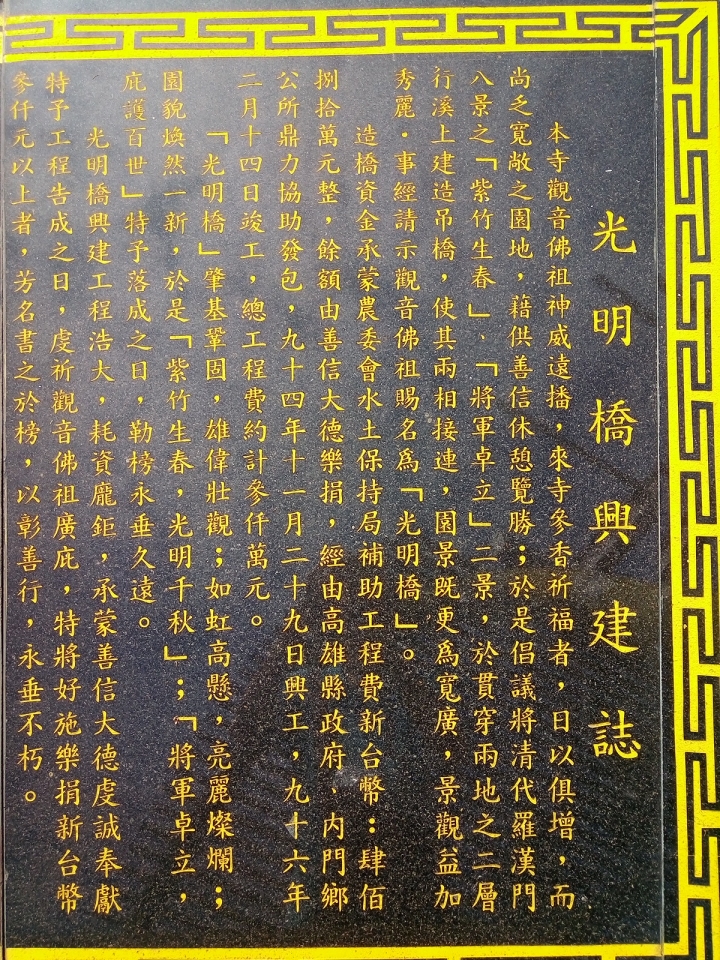 光明橋興建誌
本寺觀音佛祖神威遠播，來寺參香祈福者，日以俱增，而
尚之寬敞之園地，藉供善信休憩覽勝；於是倡議將清代羅漢門
八景之「紫竹生春」、「將軍卓立」二景，於貫穿兩地之二層
行溪上建造吊橋，使其兩相接連，園景既更為寬廣，景觀益加
秀麗．事經請示觀音佛祖賜名為「光明橋」。
造橋資金承蒙農委會水土保持局補助工程費新台幣：肆佰
捌拾萬元整，餘額由善信大德樂捐，經由高雄縣政府．內門鄉
公所鼎力協助發包，九十四年十一月二十九日興工，九十六年
二月十四日竣工，總工程費約計參仟萬元。
「光明橋」肇基鞏固，雄偉壯觀；如虹高懸，亮麗燦爛；
園貌煥然一新，於是「紫竹生春，光明千秋」；「將軍卓立，
庇護百世」特予落成之日，勒榜永垂久遠。
光明橋興建工程浩大，耗資龐鉅，承蒙善信大德虔誠奉獻
特予工程告成之日，虔祈觀音佛祖廣庇，特將好施樂捐新台幣
參仟元以上者，芳名書之於榜，以彰善行，永垂不朽。